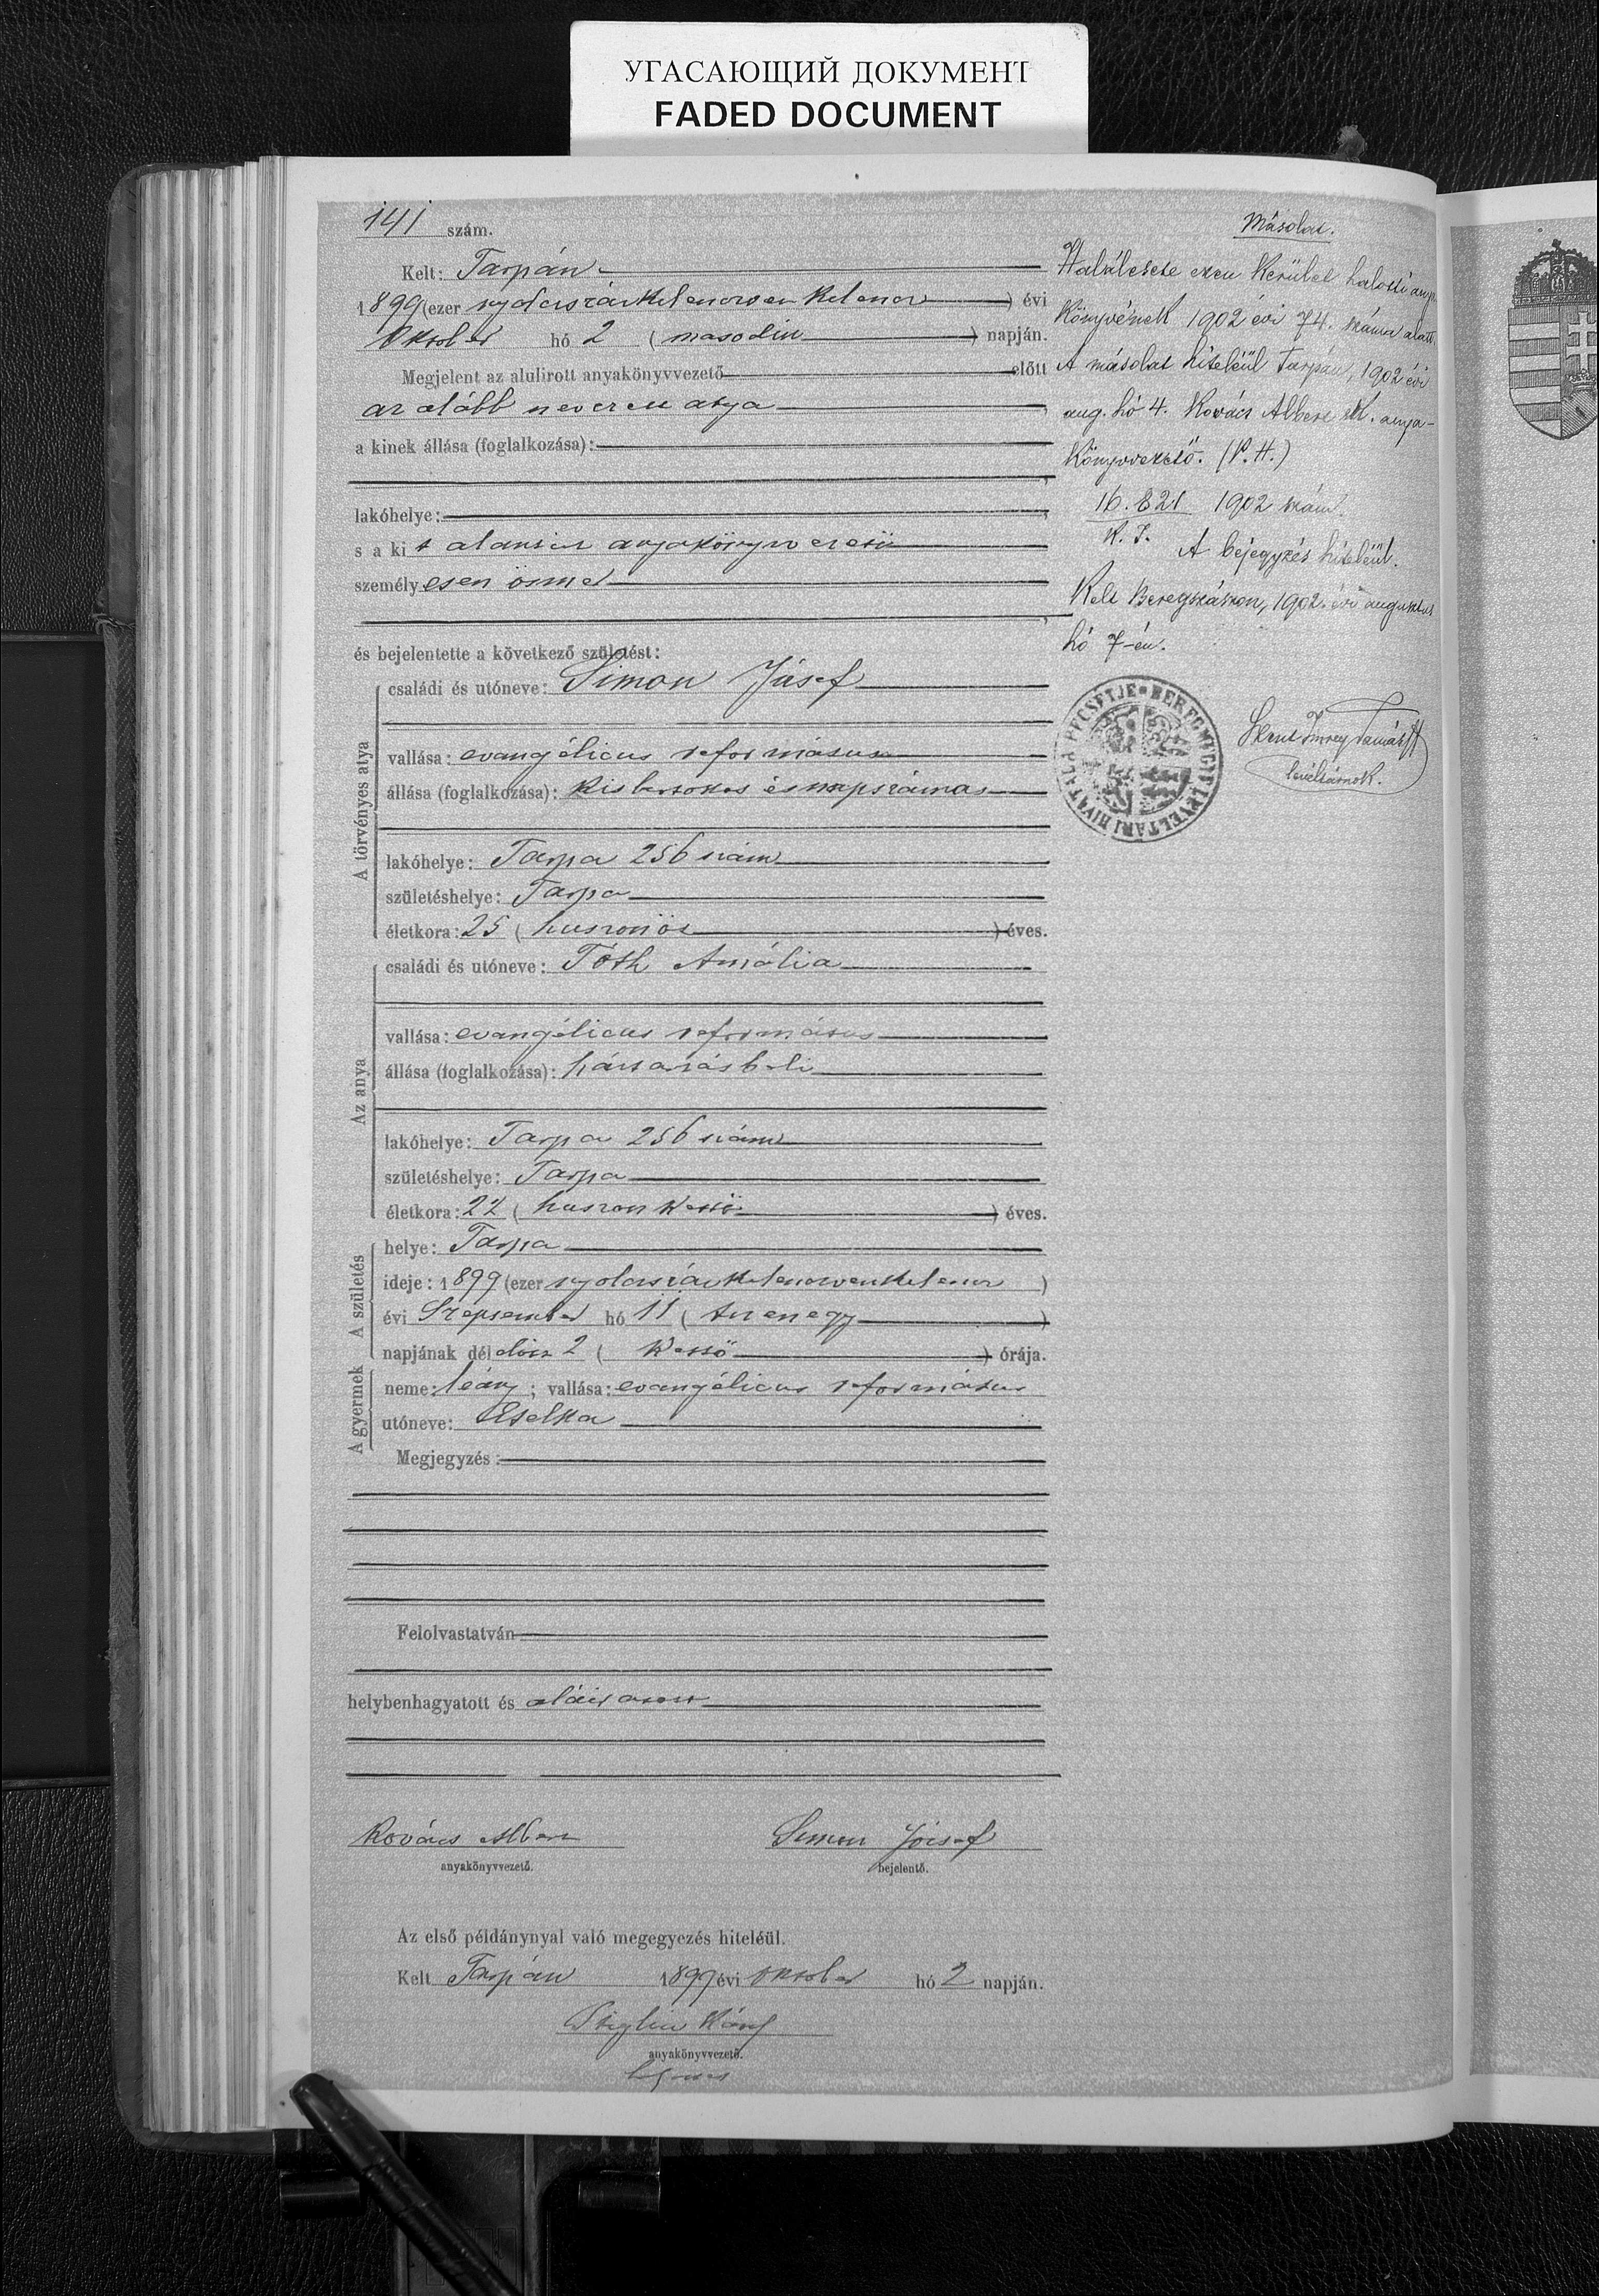 УГАСАЮЩИЙ ДОКУМЕНТ
FADED DOCUMENT
141 szám.
Kelt: Tarpán
1899 (ezer nyolcszázkilencvenkilenc) évi
október hó 2 (második) napján.
Megjelent az alulirott anyakönyvvezető előtt
az alább nevezett atya
a kinek állása (foglalkozása):
lakóhelye:
s a kit alanti anyakönyvvezető
személyesen ösmer
és bejelentette a következő születést:
A törvényes atya
családi és utóneve: Simon Jósef
vallása: evangélicus református
állása (foglalkozása): kisbirtokos és napszámos
lakóhelye: Tarpa 256 szám
születéshelye: Tarpa
életkora: 25 (huszonöt) éves.
Az anya
családi és utóneve: Tóth Amália
vallása: evangélicus református
állása (foglalkozása): háztartásbeli
lakóhelye: Tarpa 256 szám
születéshelye: Tarpa
életkora: 22 (huszonkettő) éves.
A születés
helye: Tarpa
ideje: 1899 (ezer nyolcszázkilencvenkilenc)
évi Szeptember hó 11 (tizenegy)
napjának délelőtt 2 (kettő) órája.
A gyermek
neme: leány; vallása: evangélicus református
utóneve: Etelka
Megjegyzés:
Felolvastatván
helybenhagyatott és aláiratott
Kovács Albert Simon József
anyakönyvvezető. bejelentő.
Az első példánynyal való megegyezés hiteléül.
Kelt Tarpán 1899 évi október hó 2 napján.
anyakönyvvezető.
Másolat.
Halálesete ezen kerület halotti anya
könyvének 1902 évi 74. száma alatt.
A másolat hiteléül Tarpán, 1902 évi
aug. hó 4. Kovács Albert sk. anya-
könyvvezető. (P. H.)
16.821 1902 szám.
K. I.
A bejegyzés hiteléül.
Kelt Beregszászon, 1902. évi augusztus
hó 7-én.
BEREGMEGYE LEVÉLTÁRI HIVATALA PECSÉTJE
levéltárnok.